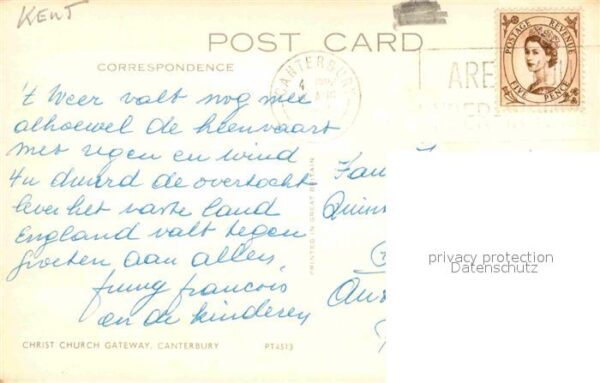 KENT
POST CARD
CORRESPONDENCE
CANTERBURY
4
POSTAGE REVENUE
FIVE PENCE
ARE
't Weer valt nog mee
alhoewel de heenvaart
met regen en wind
4u duurd de overtocht
liever het vaste land
England valt tegen
Groeten aan allen,
françois
en de kinderen
PRINTED IN GREAT BRITAIN
privacy protection
Datenschutz
CHRIST CHURCH GATEWAY, CANTERBURY PT4513